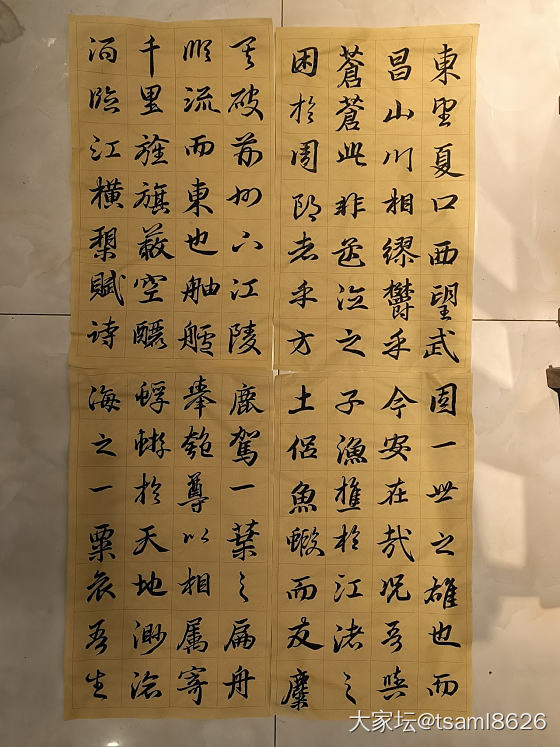 東望夏口西望武
昌山川相繆鬱乎
蒼蒼此非孟德之
困於周郎者乎方
其破荊州下江陵
順流而東也舳艫
千里旌旗蔽空釃
酒臨江橫槊賦詩
固一世之雄也而
今安在哉況吾與
子漁樵於江渚之
上侶魚蝦而友麋
鹿駕一葉之扁舟
舉匏尊以相属寄
蜉蝣於天地渺滄
海之一粟哀吾生
大家坛@tsaml8626